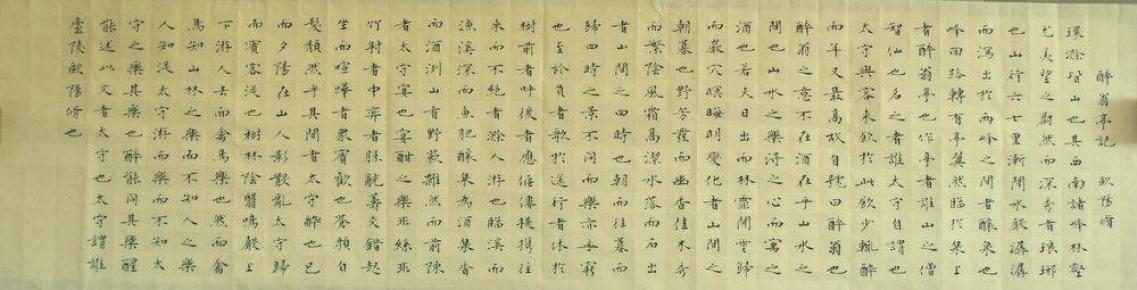 醉翁亭記 欧陽脩
環滁皆山也其西南諸峰林壑
尤美望之蔚然而深秀者琅琊
也山行六七里漸聞水聲潺潺
而瀉出於兩峰之間者釀泉也
峰回路轉有亭翼然臨於泉上
者醉翁亭也作亭者誰山之僧
智仙也名之者誰太守自謂也
太守與客來飲於此飲少輒醉
而年又最高故自號曰醉翁也
醉翁之意不在酒在乎山水之
間也山水之樂得之心而寓之
酒也若夫日出而林霏開雲歸
而巖穴暝晦明變化者山間之
朝暮也野芳發而幽香佳木秀
而繁陰風霜高潔水落而石出
者山間之四時也朝而往暮而
歸四時之景不同而樂亦無窮
也至於負者歌於途行者休於
樹前者呼後者應傴僂提攜往
來而不絕者滁人游也臨溪而
漁溪深而魚肥釀泉為酒泉香
而酒洌山肴野蔌雜然而前陳
者太守宴也宴酣之樂非絲非
竹射者中弈者勝觥籌交錯起
坐而喧嘩者眾賓歡也蒼顏白
髮頹然乎其間者太守醉也已
而夕陽在山人影散亂太守歸
而賓客從也樹林陰翳鳴聲上
下游人去而禽鳥樂也然而禽
鳥知山林之樂而不知人之樂
人知從太守游而樂而不知太
守之樂其樂也醉能同其樂醒
能述以文者太守也太守謂誰
廬陵歐陽脩也